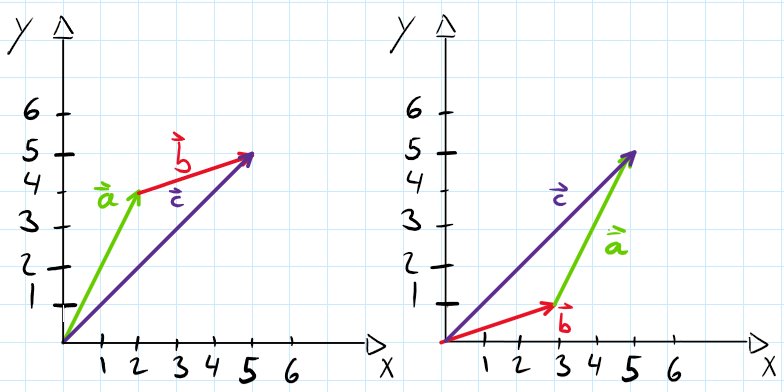 y
6
5
4
3
2
1
a⃗
b⃗
c⃗
1 2 3 4 5 6
x
y
6
5
4
3
2
1
c⃗
a⃗
b⃗
1 2 3 4 5 6
x